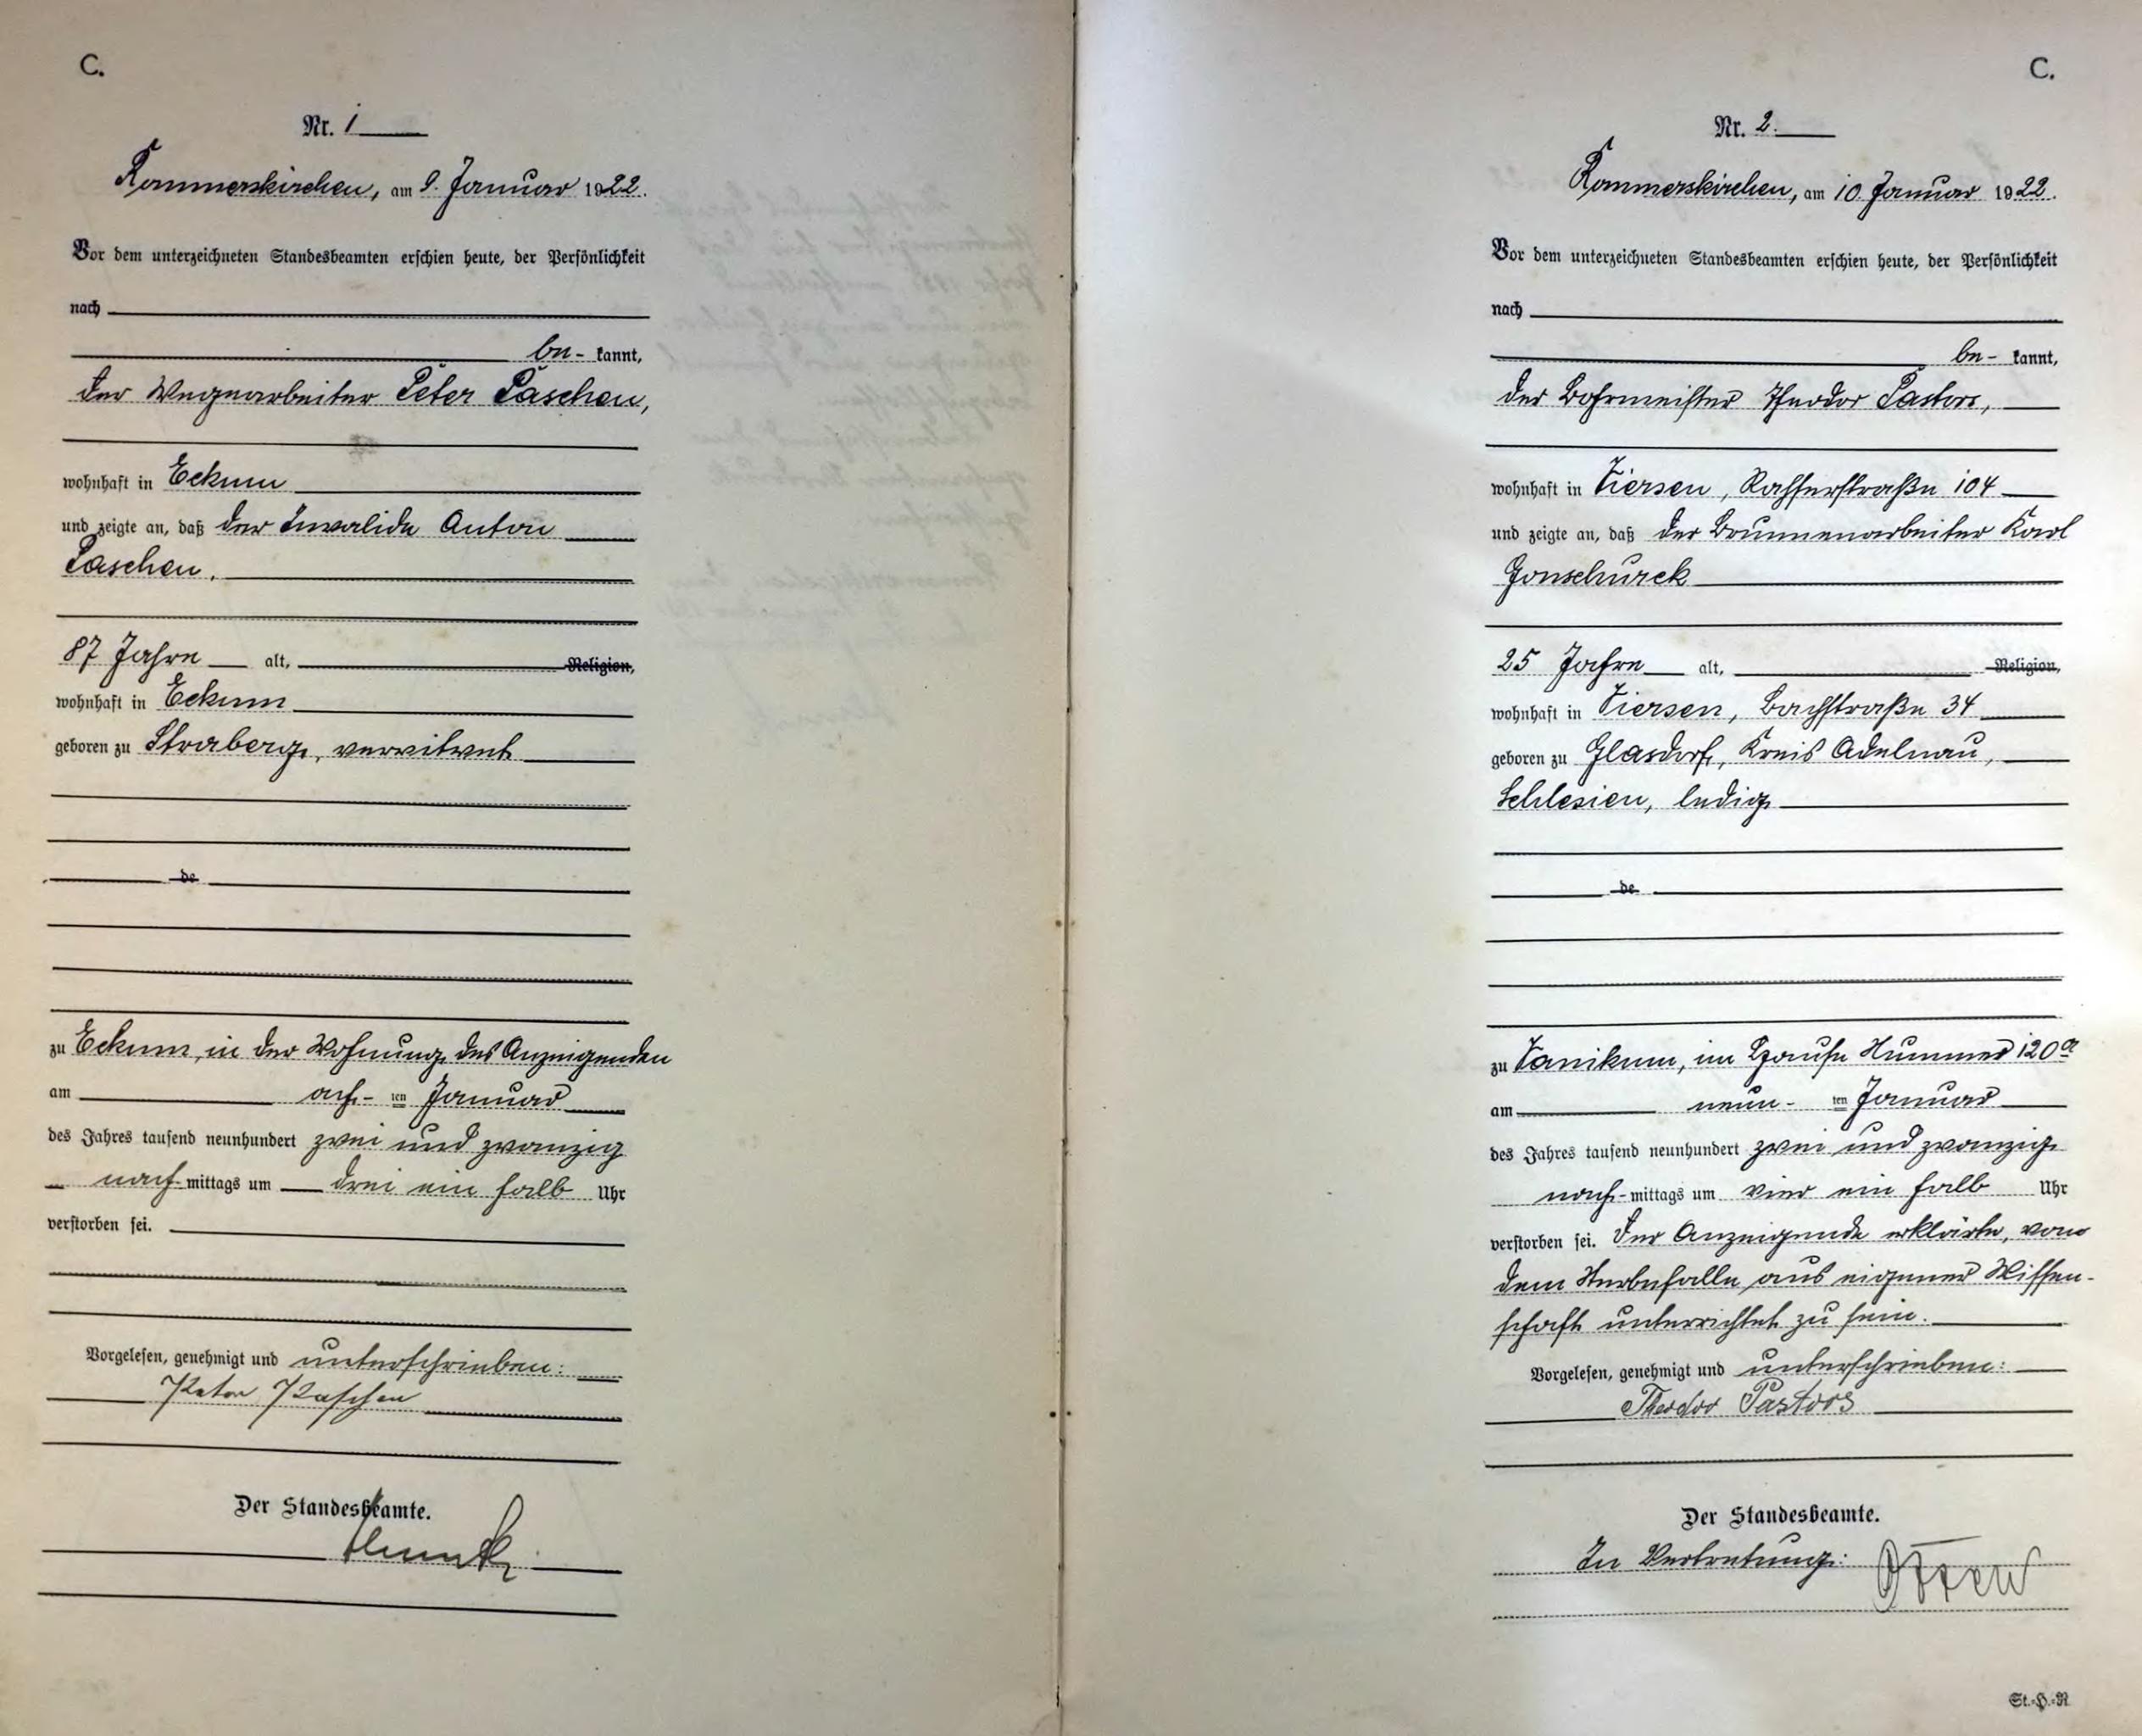 C.
Nr. 1
Rommerskirchen, am 9. Januar 1922.
Vor dem unterzeichneten Standesbeamten erschien heute, der Persönlichkeit
nach
be- kannt,
der Wegearbeiter Peter Paschen,
wohnhaft in Eckum
und zeigte an, daß der Invalide Anton
Paschen,
87 Jahre alt, Religion,
wohnhaft in Eckum
geboren zu Straberg, verwitwet
de
zu Eckum, in der Wohnung des Anzeigenden
am ach- ten Januar
des Jahres tausend neunhundert zwei und zwanzig
nach mittags um drei ein halb Uhr
verstorben sei.
Vorgelesen, genehmigt und unterschrieben:
Peter Paschen
Der Standesbeamte.
C.
Nr. 2.
Rommerskirchen, am 10. Januar 1922.
Vor dem unterzeichneten Standesbeamten erschien heute, der Persönlichkeit
nach
be- kannt,
der Bohrmeister Theodor Pastors,
wohnhaft in Viersen, Rahserstraße 104
und zeigte an, daß der Brunnenarbeiter Karl
Gonschurek
25 Jahre alt, Religion,
wohnhaft in Viersen, Bachstraße 34
geboren zu Glasdorf, Kreis Adelnau,
Schlesien, ledig
de
zu Vanikum, im Hause Nummer 120a
am neun- ten Januar
des Jahres tausend neunhundert zwei und zwanzig
nach-mittags um vier ein halb Uhr
verstorben sei. Der Anzeigende erklärte, von
dem Sterbefalle aus eigener Wissen-
schaft unterrichtet zu sein.
Vorgelesen, genehmigt und unterschrieben:
Theodor Pastors
Der Standesbeamte.
In Vertretung:
St.-H.-R